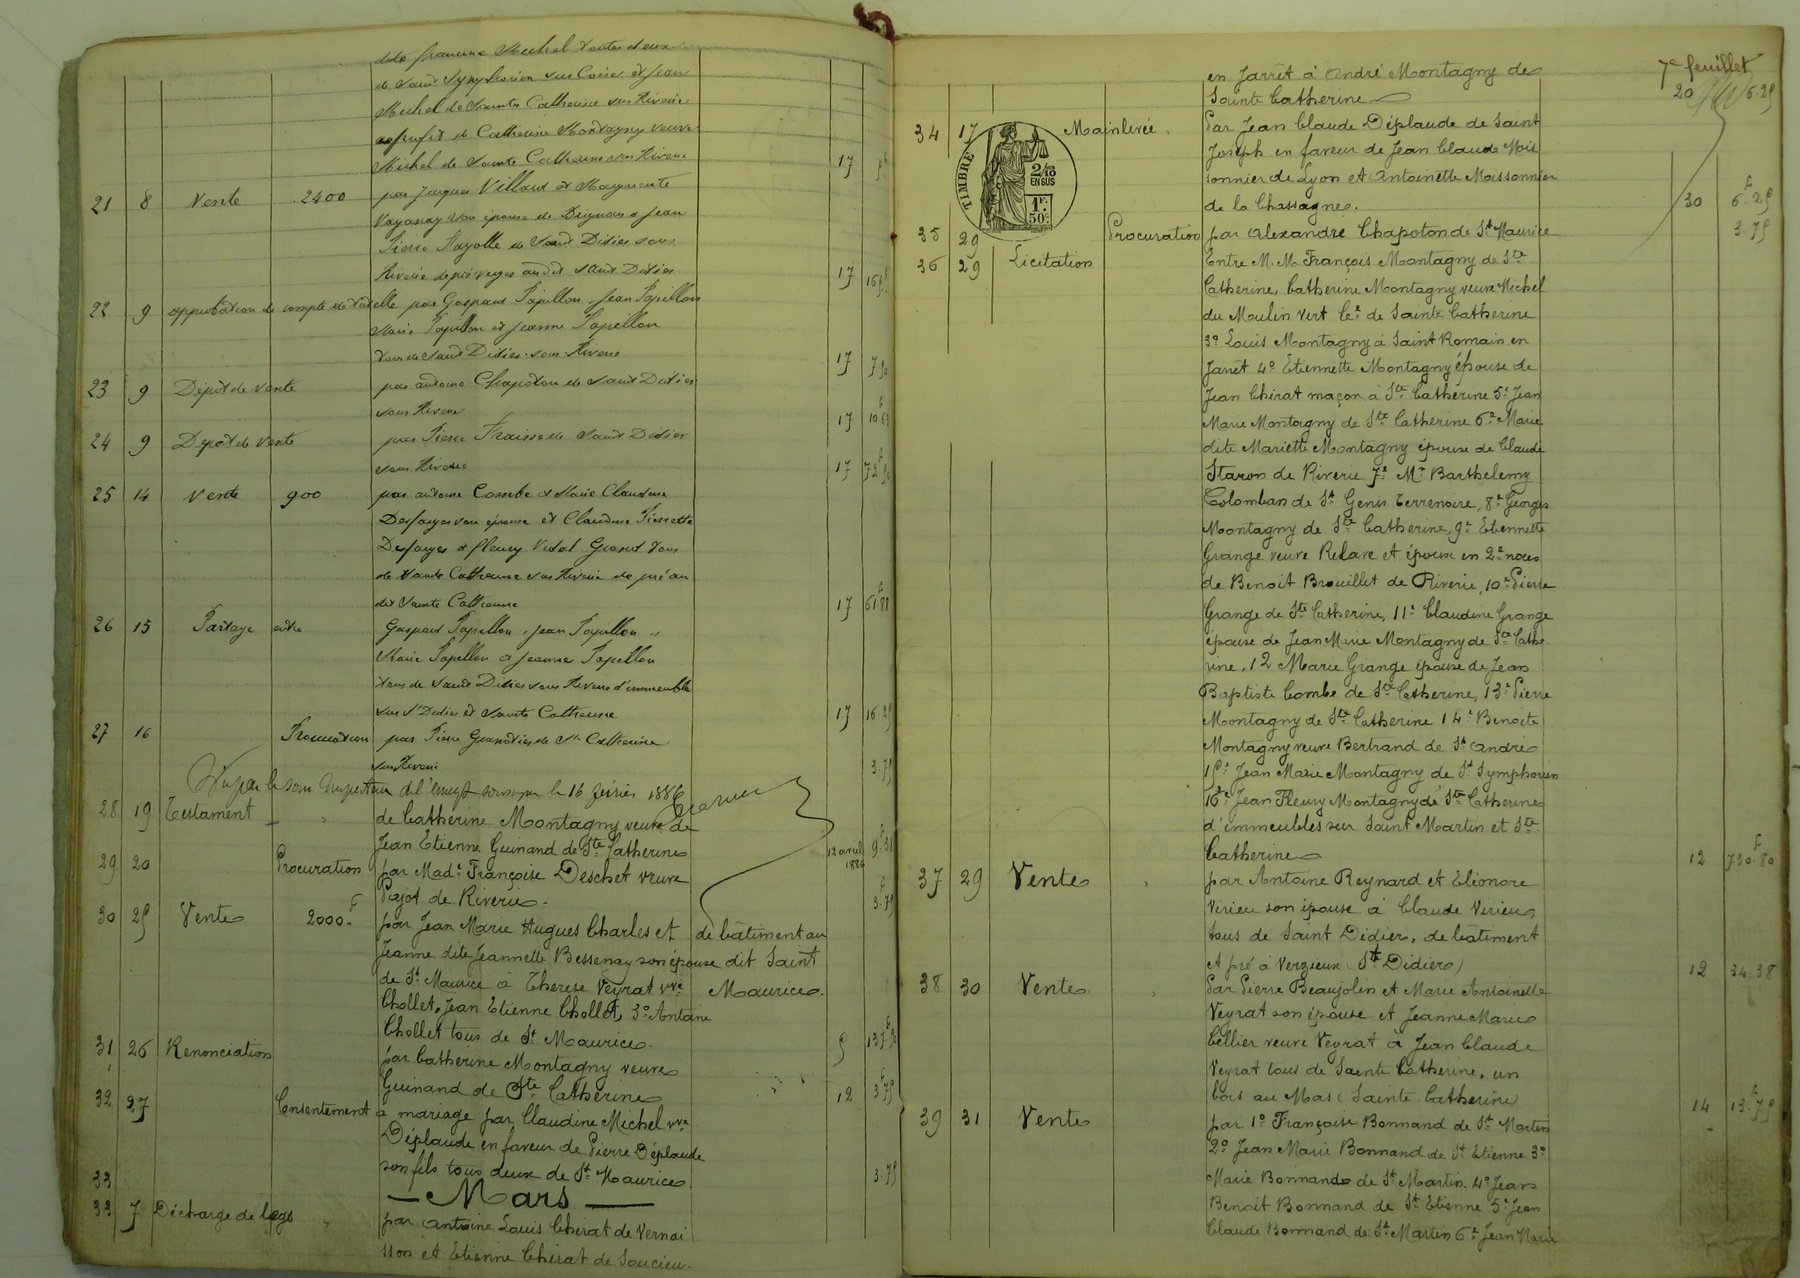 dite Francine Michel toutes deux
de Saint Symphorien sur Coise et Jean
Michel de Sainte Catherine sur Riverie
au profit de Catherine Montagny veuve
Michel de Sainte Catherine sur Riverie 17
21 8 Vente 2400 par Jacques Villard et Marguerite
son épouse de à Jean
Pierre Fayolle de Saint Didier sous
Riverie de pré verger au dit Saint Didier 17
22 9 approbation de compte de tutelle par Gaspard Papillon, Jean Papillon
Marie Papillon et Jeanne Papillon
tous de Saint Didier-sous-Riverie 17 7.50
23 9 Dépôt de vente par antoine Chapoton de Saint Didier
sous Riverie 17 10.63
24 9 Dépôt de vente par Pierre Fraisse de Saint Didier
sous Riverie 17 72.50
25 14 Vente 900 par antoine Combe et Marie Claudine
Desfarges son épouse et Claudine Pierrette
Desfarges à fleury Vidal Grand tous
de Sainte Catherine sur Riverie de pré au
dit Sainte Catherine 17 61.88
26 15 Partage entre Gaspard Papillon, Jean Papillon
Marie Papillon et Jeanne Papillon
tous de Saint Didier sous Riverie d'immeuble
sur St Didier et Sainte Catherine 17 16.25
27 16 Procuration par Pierre de Ste Catherine
sur Riverie 3.75
Vu par le sous Inspecteur de l'enregt soussigné le 16 février 1886
28 19 Testament " de Catherine Montagny veuve de
Jean Etienne Guinand de Ste Catherine 12 avril 1886 9.31
29 20 Procuration par Made Françoise Deschet veuve
Pajot de Riverie. 3.75
30 25 Vente 2000f par Jean Marie Hugues Charles et de bâtiment au
Jeanne dite Jeannette Bessenay son épouse dit Saint
de St Maurice à Therese Veyrat vve Maurice.
Chollet, Jean Etienne Chollet, 3° Antoine
Chollet tous de St Maurice. 5 137.50
31 26 Renonciation par Catherine Montagny veuve
Guinand de Ste Catherine 12 3.75
32 27 Consentement à mariage par Claudine Michel vve
Déplaude en faveur de Pierre Déplaude
son fils tous deux de St Maurice. 3.75
33 — Mars —
33 7 Décharge de legs " par Antoine Louis Chirat de Vernai
sson et Etienne Chirat de Soucieu-
7e feuillet
en Jarrêt à André Montagny de 20 6.25
Sainte Catherine
34 17 Mainlevée. Par Jean Claude Déplaude de Saint
Joseph en faveur de Jean Claude Mois
sonnier de Lyon et Antoinette Moissonnier
de la Chassagne. 30 6.25
TIMBRE
2/10
EN SUS
1F.
50c.
35 29 Procuration par Alexandre Chapoton de St Maurice 3.75
36 29 Licitation Entre M. M. François Montagny de Ste
Catherine, Catherine Montagny veuve Michel
du Moulin Vert Cne de Sainte Catherine
3° Louis Montagny à Saint Romain en
Jarrêt 4° Etiennette Montagny épouse de
Jean Chirat maçon à Ste Catherine 5° Jean
Marie Montagny de Ste Catherine 6° Marie
dite Mariette Montagny épouse de Claude
Staron de Riverie 7° Mr Barthelemy
Colomban de St Genis Terrenoire, 8° Georges
Montagny de Ste Catherine, 9° Etiennette
Grange veuve Relave et épouse en 2e noces
de Benoit Brouillet de Riverie, 10° Pierre
Grange de Ste Catherine, 11° Claudine Grange
épouse de Jean Marie Montagny de Ste Cathe
rine, 12 Marie Grange épouse de Jean
Baptiste Combe de Ste Catherine, 13° Pierre
Montagny de Ste Catherine 14° Benoite
Montagny veuve Bertrand de St André
15° Jean Marie Montagny de St Symphorien
16° Jean Fleury Montagny de Ste Catherine
d'immeubles sur Saint Martin et Ste
Catherine 12 730.80
37 29 Vente " par Antoine Reynard et Elionore
Virieu son épouse à Claude Virieu,
tous de Saint Didier, de batiment
et pré à Verzieux (St Didier) 12 34.38
38 30 Vente " Par Pierre Beaujolin et Marie Antoinette
Veyrat son épouse et Jeanne Marie
Cellier veuve Veyrat à Jean Claude
Veyrat tous de Sainte Catherine, un
bois au Mas (Sainte Catherine) 14 13.75
39 31 Vente par 1° Françoise Bonnand de St Martin
2° Jean Marie Bonnand de St Etienne 3°
Marie Bonnande de St Martin. 4° Jean
Benoit Bonnand de St Etienne 5° Jean
Claude Bonnand de St Martin 6° Jean Marie